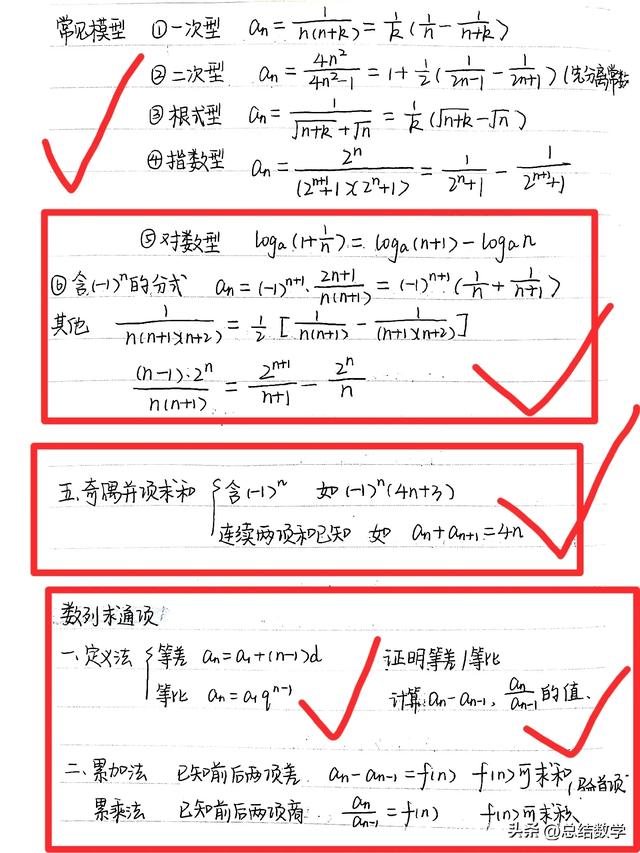 常见模型 ①一次型 an=1/n(n+k)=1/k(1/n-1/n+k)
②二次型 an=4n²/4n²-1=1+1/2(1/2n-1-1/2n+1)(先分离常数
③根式型 an=1/√n+k+√n=1/k(√n+k-√n)
④指数型 an=2ⁿ/(2ⁿ⁺¹+1)(2ⁿ+1)=1/2ⁿ+1-1/2ⁿ⁺¹+1
⑤对数型 loga(1+1/n)=loga(n+1)-logan
⑥含(-1)ⁿ的分式 an=(-1)ⁿ⁺¹·2n+1/n(n+1)=(-1)ⁿ⁺¹(1/n+1/n+1)
其他 1/n(n+1)(n+2)=1/2[1/n(n+1)-1/(n+1)(n+2)]
(n-1)·2ⁿ/n(n+1)=2ⁿ⁺¹/n+1-2ⁿ/n
五.奇偶并项求和 { 含(-1)ⁿ 如(-1)ⁿ(4n+3)
连续两项和已知 如 an+an+1=4n
数列求通项
一.定义法 { 等差 an=a1+(n-1)d 证明等差/等比
等比 an=a1qⁿ⁻¹ 计算an-an-1, an/an-1的值.
二.累加法 已知前后两项差 an-an-1=f(n) f(n)可求和,
累乘法 已知前后两项商 an/an-1=f(n) f(n)可求积
头条 @总结数学